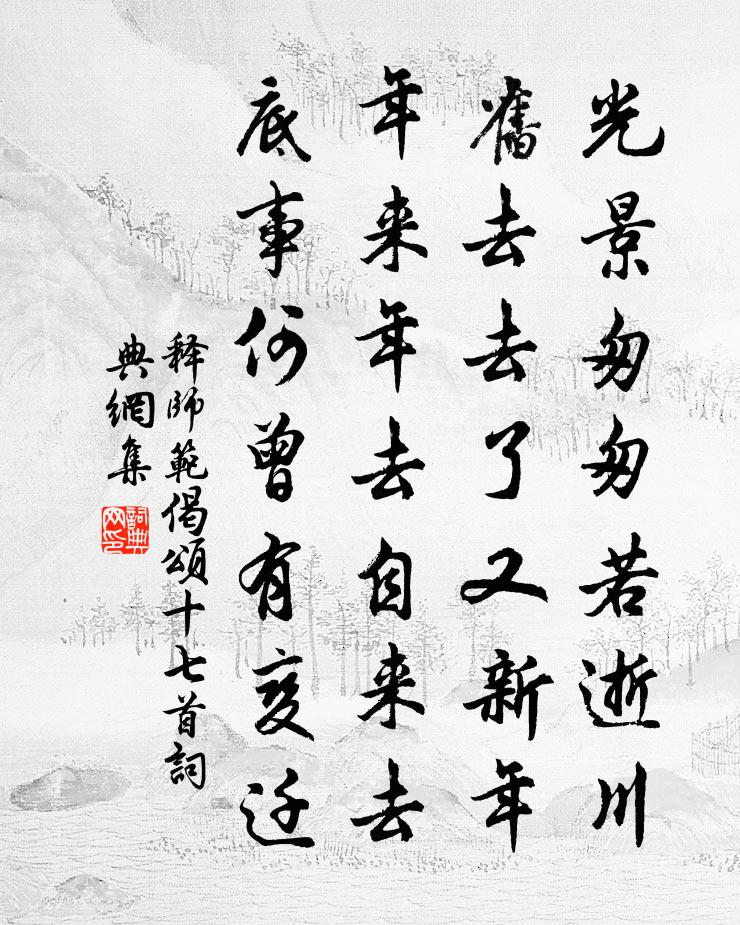 光景匆匆若逝川
舊去去了又新年
年来年去自来去
底事何曾有变迁
释師範偈頌十七首詞
典網集
詞典网印